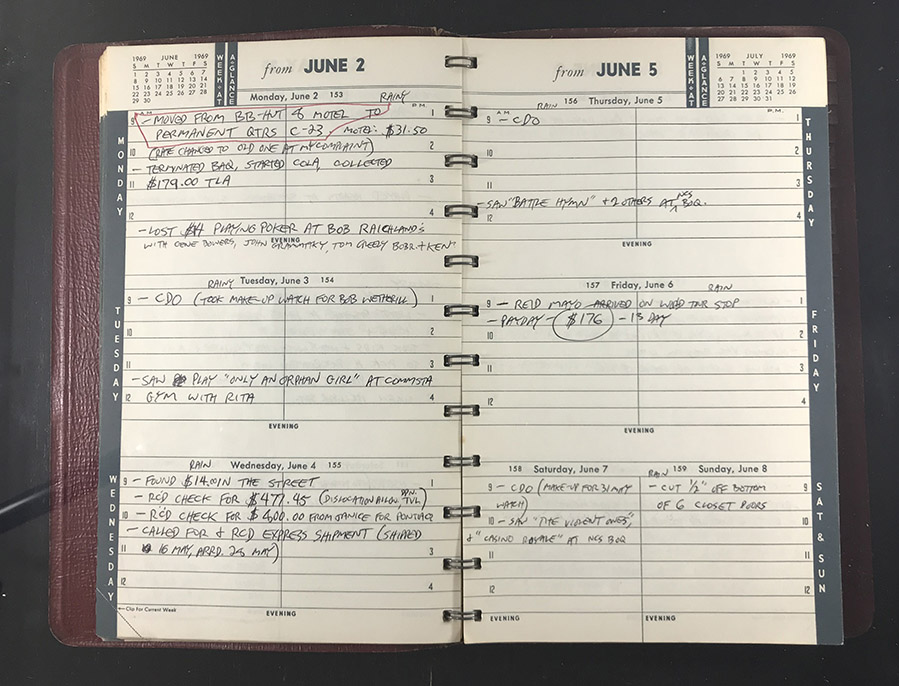 1969 JUNE 1969
S M T W T F S
1 2 3 4 5 6 7
8 9 10 11 12 13 14
15 16 17 18 19 20 21
22 23 24 25 26 27 28
29 30
WEEK·AT
A·GLANCE
from JUNE 2
Monday, June 2 153 RAINY
A M P.M.
9 - MOVED FROM BB-HNT & MOTEL TO 1
PERMANENT QTRS C-23, MOTEL: $31.50
10 (RATE CHANGED TO OLD ONE AT MY COMPLAINT) 2
- TERMINATED BAQ, STARTED COLA, COLLECTED
11 $179.00 TLA 3
12 4
- LOST $4 PLAYING POKER AT BOB RAICHLAND'S
EVENING
WITH GENE BOWERS, JOHN TOM BOB R. + KEN
MONDAY
RAINY Tuesday, June 3 154
9 - CDO (TOOK MAKE-UP WATCH FOR BOB WETHERILL) 1
10 2
11 3
- SAW PLAY "ONLY AN ORPHAN GIRL" AT COMMSTA
12 GYM WITH RITA 4
EVENING
TUESDAY
RAIN Wednesday, June 4 155
9 - FOUND $14.00 IN THE STREET 1
- RCD CHECK FOR $477.45 (DISLOCATION ALLOW, TVL)
10 - RCD CHECK FOR $400.00 FROM JANICE FOR PONTIAC
- CALLED FOR & RCD EXPRESS SHIPMENT (SHIPPED
11 16 MAY, ARRD. 28 MAY) 3
12 4
←Clip For Current Week
EVENING
WEDNESDAY
from JUNE 5
WEEK·AT
A·GLANCE
1969 JULY 1969
S M T W T F S
1 2 3 4 5
6 7 8 9 10 11 12
13 14 15 16 17 18 19
20 21 22 23 24 25 26
27 28 29 30 31
RAIN 156 Thursday, June 5
A M P.M.
9 - CDO 1
10 2
11 3
NCS
- SAW "BATTLE HYMN" + 2 OTHERS AT BOQ.
12 4
EVENING
THURSDAY
157 Friday, June 6 RAIN
9 - REID MAYO ARRIVED ON WEEK TNR STOP 1
- PAYDAY - $176 - 13 DAY
10 2
11 3
12 4
EVENING
FRIDAY
158 Saturday, June 7
9 - CDO (MAKE-UP FOR 31 MAY
WATCH)
10 - SAW "THE VIOLENT ONES",
& "CASINO ROYALE" AT NCS BOQ
11
12
EVENING
RAIN 159 Sunday, June 8
- CUT 1/2" OFF BOTTOM 9
OF 6 CLOSET DOORS
10
11
12
EVENING
SAT & SUN